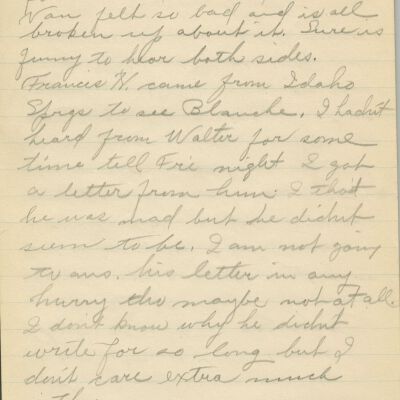 Van felt so bad and is all
broken up about it. Sure is
funny to hear both sides.
Francis K. came from Idaho
Sprgs to see Blanche. I hadn't
heard from Walter for some
time tell Fri night I got
a letter from him. I thot
he was mad but he didn't
seem to be. I am not going
to ans. his letter in any
hurry tho maybe not at all.
I don't know why he didn't
write for so long but I
don't care extra much